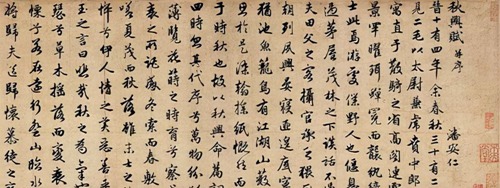 秋興賦 并序
潘安仁
晉十有四年余春秋三十有二
見二毛以太尉掾兼虎賁中郎
寓直于散騎之省高閣連
景罕曜珥蟬冕而襲紈
士此焉游處僕野人也偃息
過茅屋茂林之下談話不過
夫田父之客攝官承乏猥
朝列夙興晏寢匪遑底寧
猶池魚籠鳥有江湖山藪
於是染翰操紙慨然而
于時秋也故以秋興命篇
四時忽其代序兮萬物紛以
薄覽花蒔之時育兮察
衰之所託感冬索而春敷
嗟夏茂而秋落雖末士之
悴兮伊人情之美惡善乎
玉之言曰悲哉秋之為氣
瑟兮草木搖落而變衰
慄兮若在遠行登山臨水
將歸夫送歸懷慕徒之